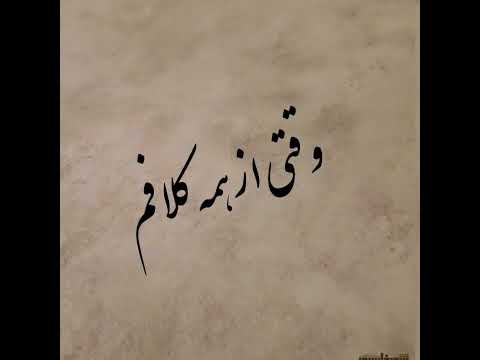 وقتی از همه کلافم